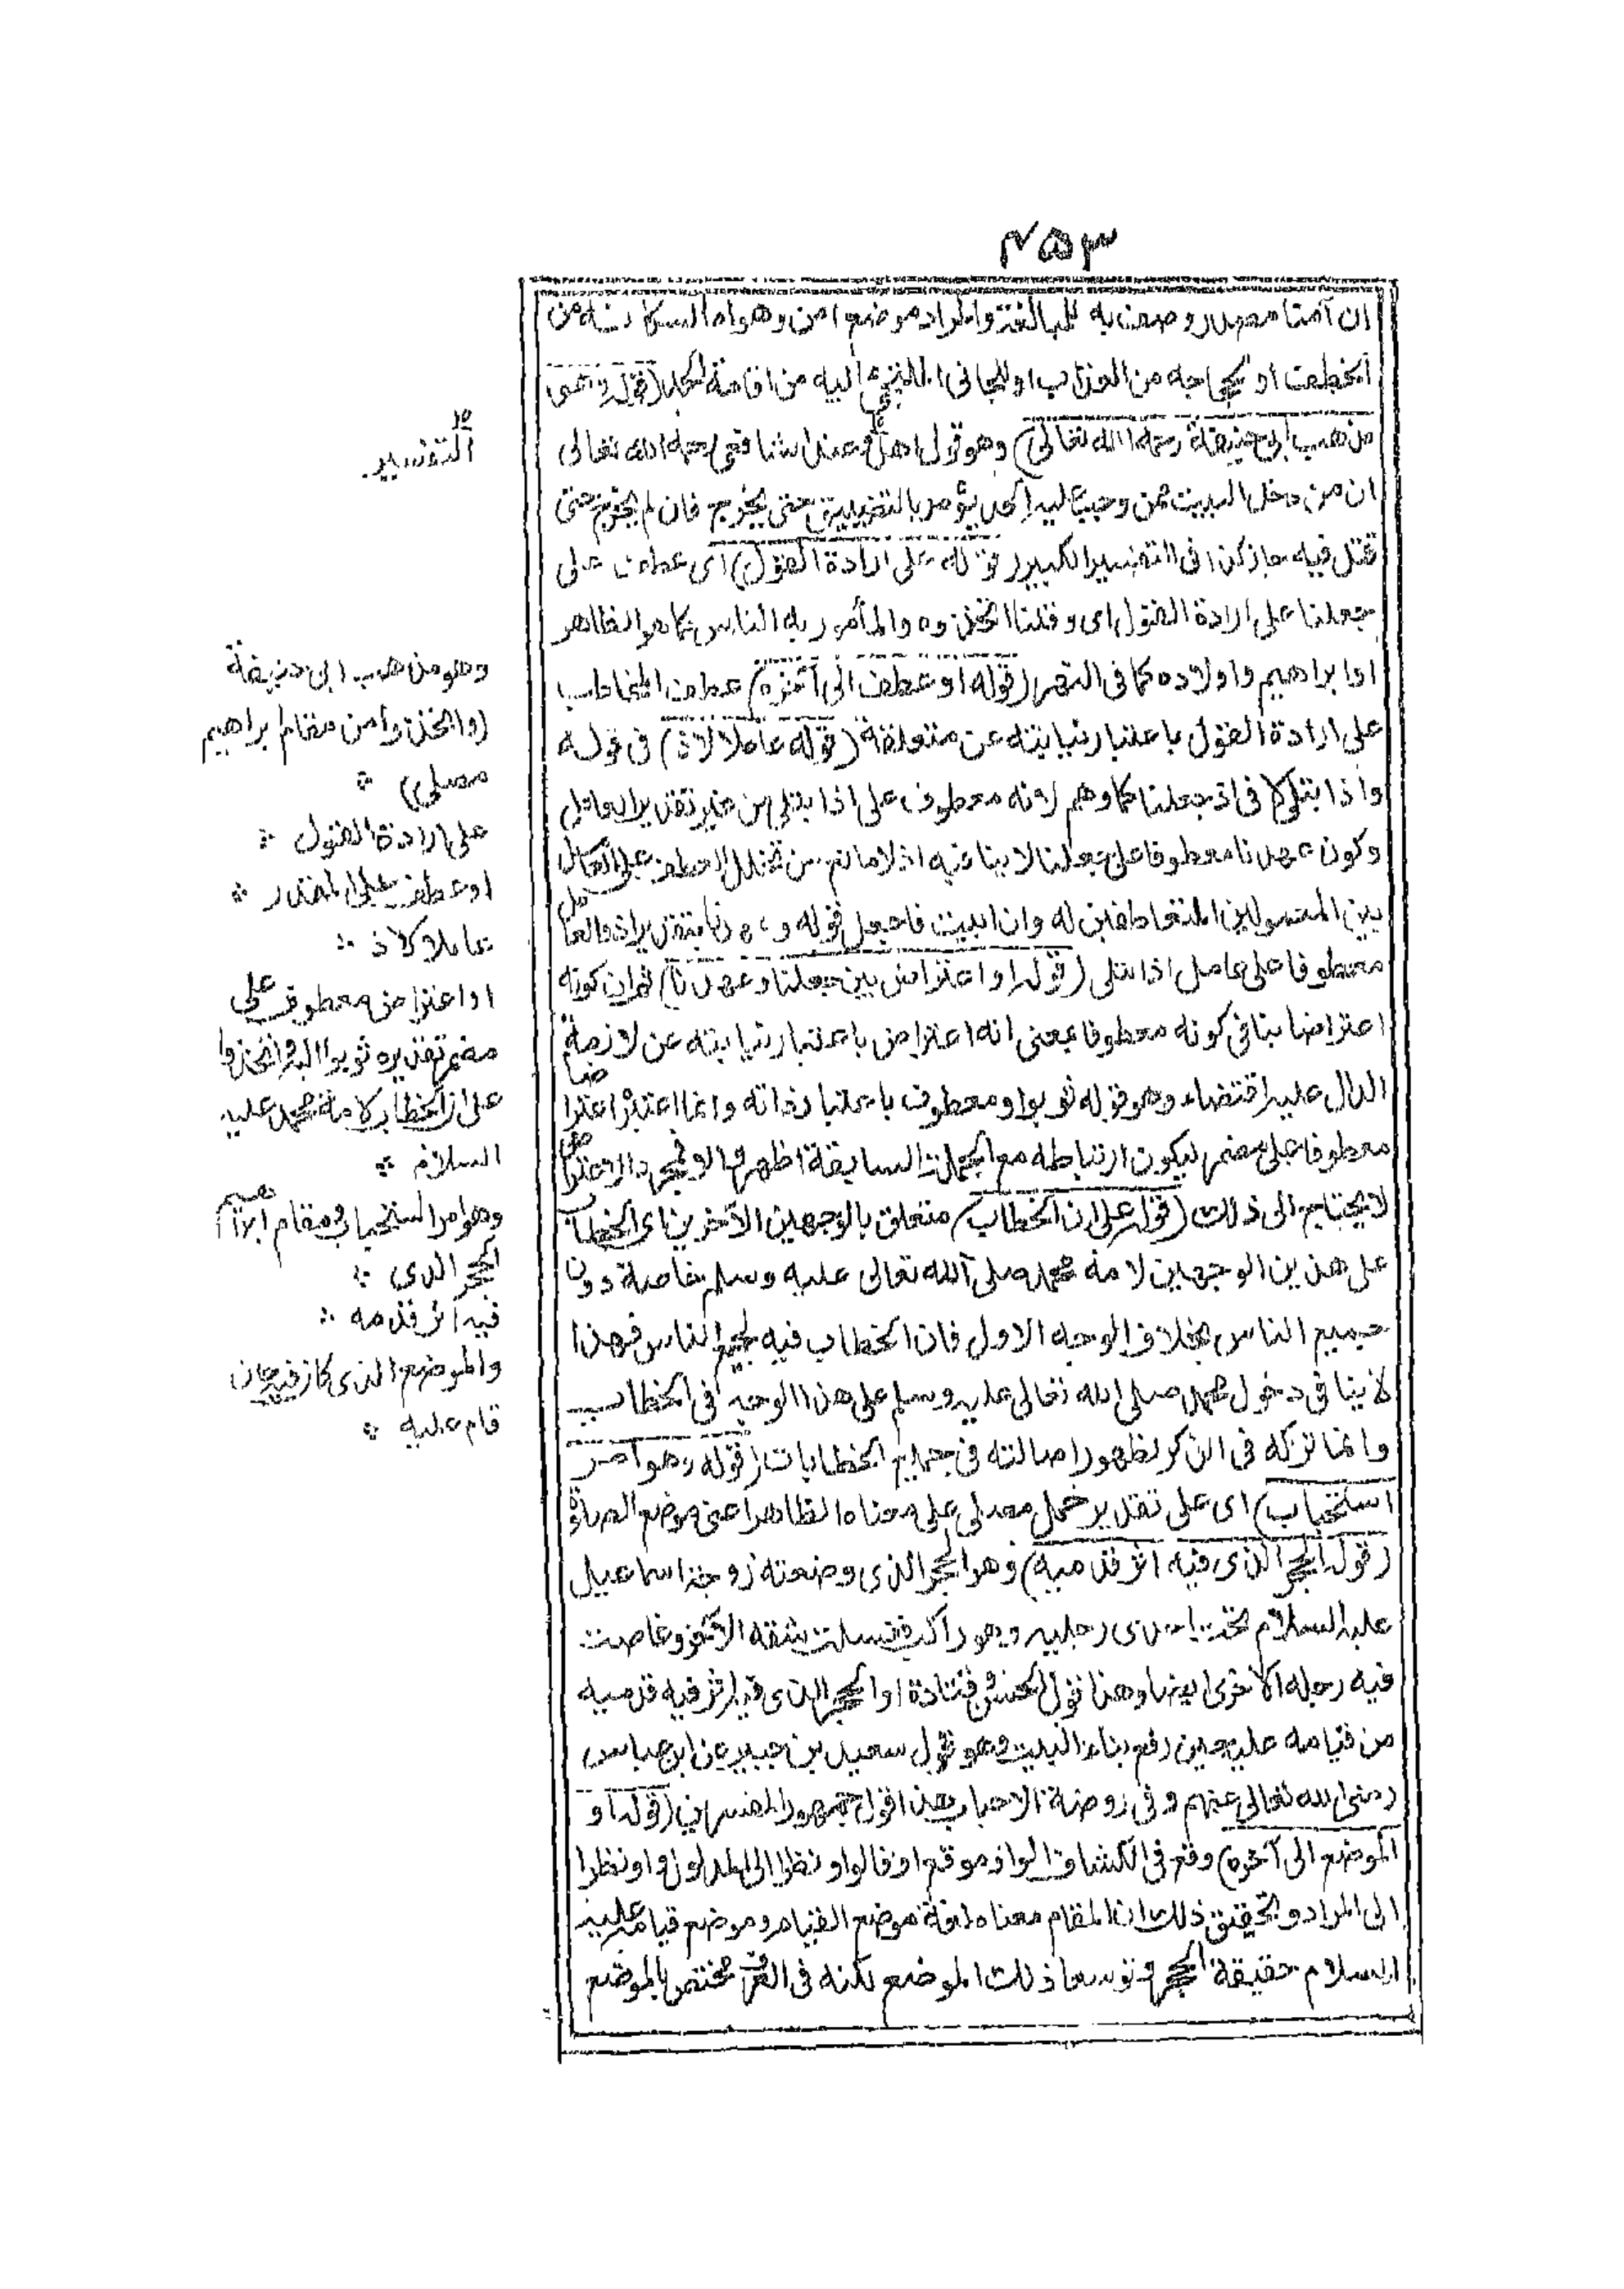 ٧٥٣
ان آمنا مصدر وصف به للمبالغة والمراد موضع امن وهو اما لسكانه من
الخطف او لحجاجه من العذاب او للجانى الملتجئ اليه من اقامة الحد (قوله وهى
مذهب ابى حنيفة رحمه الله تعالى) وهو قول احمد وعند الشافعى رحمه الله تعالى
ان من دخل البيت ممن وجب عليه الحد يؤمر بالتضييق حتى يخرج فان لم يخرج حتى
قتل فيه جاز كذا فى التفسير الكبير (قوله على ارادة القول) اى عطف على
جعلنا على ارادة القول اى وقلنا اتخذوه والمأمور به الناس كما هو الظاهر
او ابراهيم واولاده كما فى (قوله او عطف الى آخره) عطف المخاطب
على ارادة القول باعتبار نيابته عن متعلقة (قوله عاملا لاذ) فى قوله
واذ ابتلى لا فى اذ جعلنا كما وهم لانه معطوف على اذ ابتلى من غير تقدير العامل
وكون عهدنا معطوفا على جعلنا لا ينافيه اذ لا مانع من تخلل العطف على العامل
بين المعمولين المتعاطفين له وان ابيت فاجعل قوله وعهدنا بتقدير اذ والعامل
معطوفا على عامل اذ ابتلى (قوله او اعتراض بين جعلنا وعهدنا) ثم ان كونه
اعتراضا ينافى كونه معطوفا بمعنى انه اعتراض باعتبار نيابته عن لازمة
الدال عليه اقتضاء وهو قوله ثوبوا ومعطوف باعتبار ذاته وانما اعتبر اعتراضا
معطوفا على مضمر ليكون ارتباطه مع الجملة السابقة اظهر والا فمجرد الاعتراض
لا يحتاج الى ذلك (قوله على ان الخطاب) متعلق بالوجهين الآخرين اى الخطاب
على هذين الوجهين لامة محمد صلى الله تعالى عليه وسلم خاصة دون
جميع الناس بخلاف الوجه الاول فان الخطاب فيه لجميع الناس فهذا
لا ينافى دخول محمد صلى الله تعالى عليه وسلم على هذا الوجه فى الخطاب
وانما تركه فى الذكر لظهور اصالته فى جميع الخطابات (قوله وهو امر
استحباب) اى على تقدير حمل مصلى على معناه الظاهر اعنى موضع الصلاة
(قوله الحجر الذى فيه اثر قدميه) وهو الحجر الذى وضعته زوجة اسماعيل
عليه السلام تحت احدى رجليه وهو راكب فغسلت شقه الايمن وغاصت
فيه رجله الاخرى ايضا وهذا قول الحسن وقتادة او الحجر الذى فيه اثر فيه قدميه
من قيامه عليه حين رفع بناء البيت وهو قول سعيد بن جبير عن ابن عباس
رضى الله تعالى عنهم وفى روضة الاحباب هذا قول جمهور المفسرين (قوله او
الموضع الى آخره) وقع فى الكشاف الواو موقع او فالواو نظرا الى المدلول واو نظرا
الى المراد وتحقيق ذلك ان المقام معناه لغة موضع القيام وموضع قيامه عليه
السلام حقيقة الحجر وتوسعا ذلك الموضع لكنه فى العرف مختص بالموضع
التفسير
وهو مذهب ابى حنيفة
(واتخذوا من مقام ابراهيم
مصلى)
على ارادة القول
او عطف على المقدر
عاملا لاذ
او اعتراض معطوف على
مضمر تقديره ثوبوا اليه واتخذوا
على ان الخطاب لامة محمد عليه
السلام
وهو امر استحباب ومقام ابراهيم
الحجر الذى
فيه اثر قدمه
والموضع الذى كان فيه حين
قام عليه